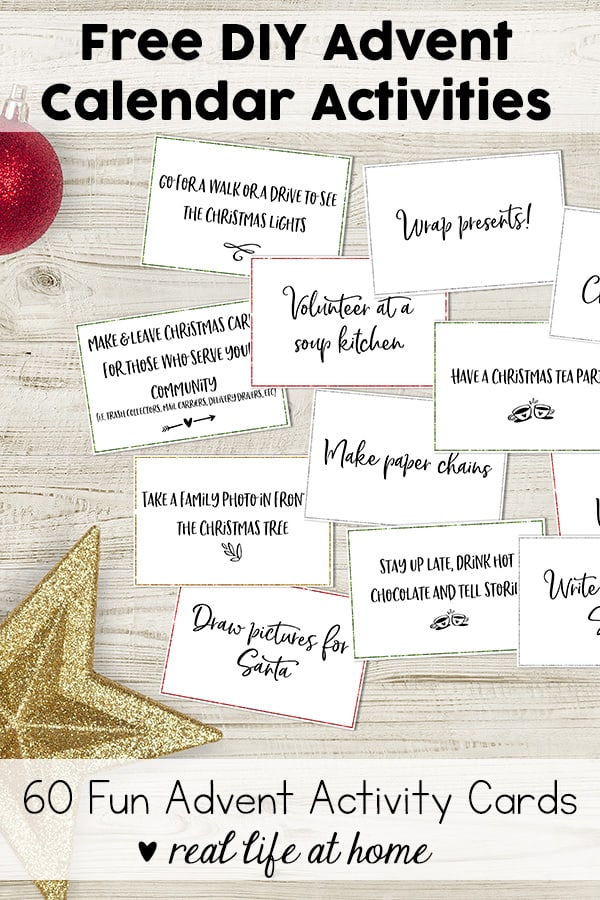 Free DIY Advent
Calendar Activities
GO FOR A WALK OR A DRIVE TO SEE
THE CHRISTMAS LIGHTS
Wrap presents!
Volunteer at a
soup kitchen
MAKE & LEAVE CHRISTMAS
FOR THOSE WHO SERVE
COMMUNITY
(I.E. TRASH COLLECTORS, MAIL CARRIERS, DELIVERY DRIVERS, ETC)
HAVE A CHRISTMAS TEA
Make paper chains
TAKE A FAMILY PHOTO IN
THE CHRISTMAS TREE
STAY UP LATE, DRINK HOT
CHOCOLATE AND TELL
Write
Draw pictures for
Santa
60 Fun Advent Activity Cards
real life at home